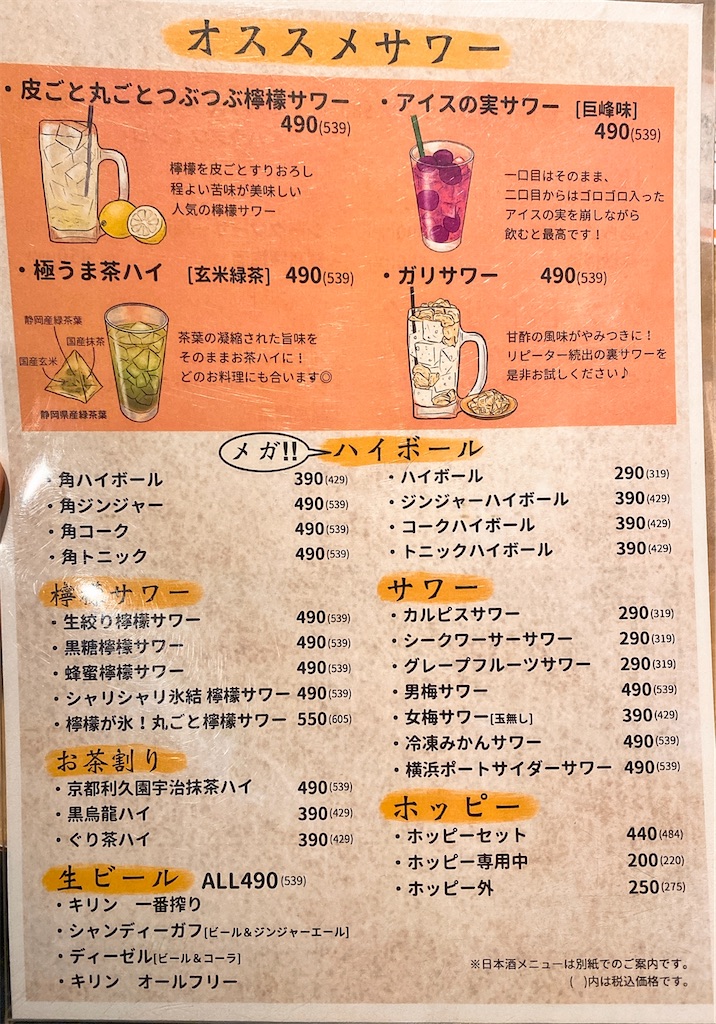 オススメサワー
・皮ごと丸ごとつぶつぶ檸檬サワー
490(539)
檸檬を皮ごとすりおろし
程よい苦味が美味しい
人気の檸檬サワー
・アイスの実サワー [巨峰味]
490(539)
一口目はそのまま、
二口目からはゴロゴロ入った
アイスの実を崩しながら
飲むと最高です！
・極うま茶ハイ [玄米緑茶] 490(539)
静岡産緑茶葉
国産抹茶
国産玄米
静岡県産緑茶葉
茶葉の凝縮された旨味を
そのままお茶ハイに！
どのお料理にも合います◎
・ガリサワー 490(539)
甘酢の風味がやみつきに！
リピーター続出の裏サワーを
是非お試しください♪
メガ!! ハイボール
・角ハイボール 390(429)
・角ジンジャー 490(539)
・角コーク 490(539)
・角トニック 490(539)
・ハイボール 290(319)
・ジンジャーハイボール 390(429)
・コークハイボール 390(429)
・トニックハイボール 390(429)
檸檬サワー
・生絞り檸檬サワー 490(539)
・黒糖檸檬サワー 490(539)
・蜂蜜檸檬サワー 490(539)
・シャリシャリ氷結 檸檬サワー 490(539)
・檸檬が氷！丸ごと檸檬サワー 550(605)
サワー
・カルピスサワー 290(319)
・シークワーサーサワー 290(319)
・グレープフルーツサワー 290(319)
・男梅サワー 490(539)
・女梅サワー[玉無し] 390(429)
・冷凍みかんサワー 490(539)
・横浜ポートサイダーサワー 490(539)
お茶割り
・京都利久園宇治抹茶ハイ 490(539)
・黒烏龍ハイ 390(429)
・ぐり茶ハイ 390(429)
ホッピー
・ホッピーセット 440(484)
・ホッピー専用中 200(220)
・ホッピー外 250(275)
生ビール ALL490(539)
・キリン 一番搾り
・シャンディーガフ[ビール＆ジンジャーエール]
・ディーゼル[ビール＆コーラ]
・キリン オールフリー
※日本酒メニューは別紙でのご案内です。
( )内は税込価格です。